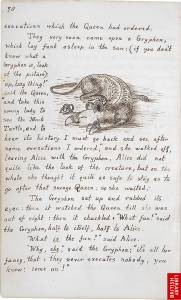 70
executions which the Queen had ordered.
They very soon came upon a Gryphon,
which lay fast asleep in the sun: (if you don't
know what a
Gryphon is, look
at the picture)
up, lazy thing!"
said the Queen,
"and take this
young lady to
see the Mock
Turtle, and to
hear its history. I must go back and see after
some executions I ordered," and she walked off,
leaving Alice with the Gryphon. Alice did not
quite like the look of the creature, but on the
whole she thought it quite as safe to stay as to
go after that savage Queen: so she waited.
The Gryphon sat up and rubbed its
eyes: then it watched the Queen till she was
out of sight: then it chuckled. "What fun!" said
the Gryphon, half to itself, half to Alice.
"What is the fun?" said Alice.
"Why, she," said the Gryphon; "it's all her
fancy, that: they never executes nobody, you
know: come on!"